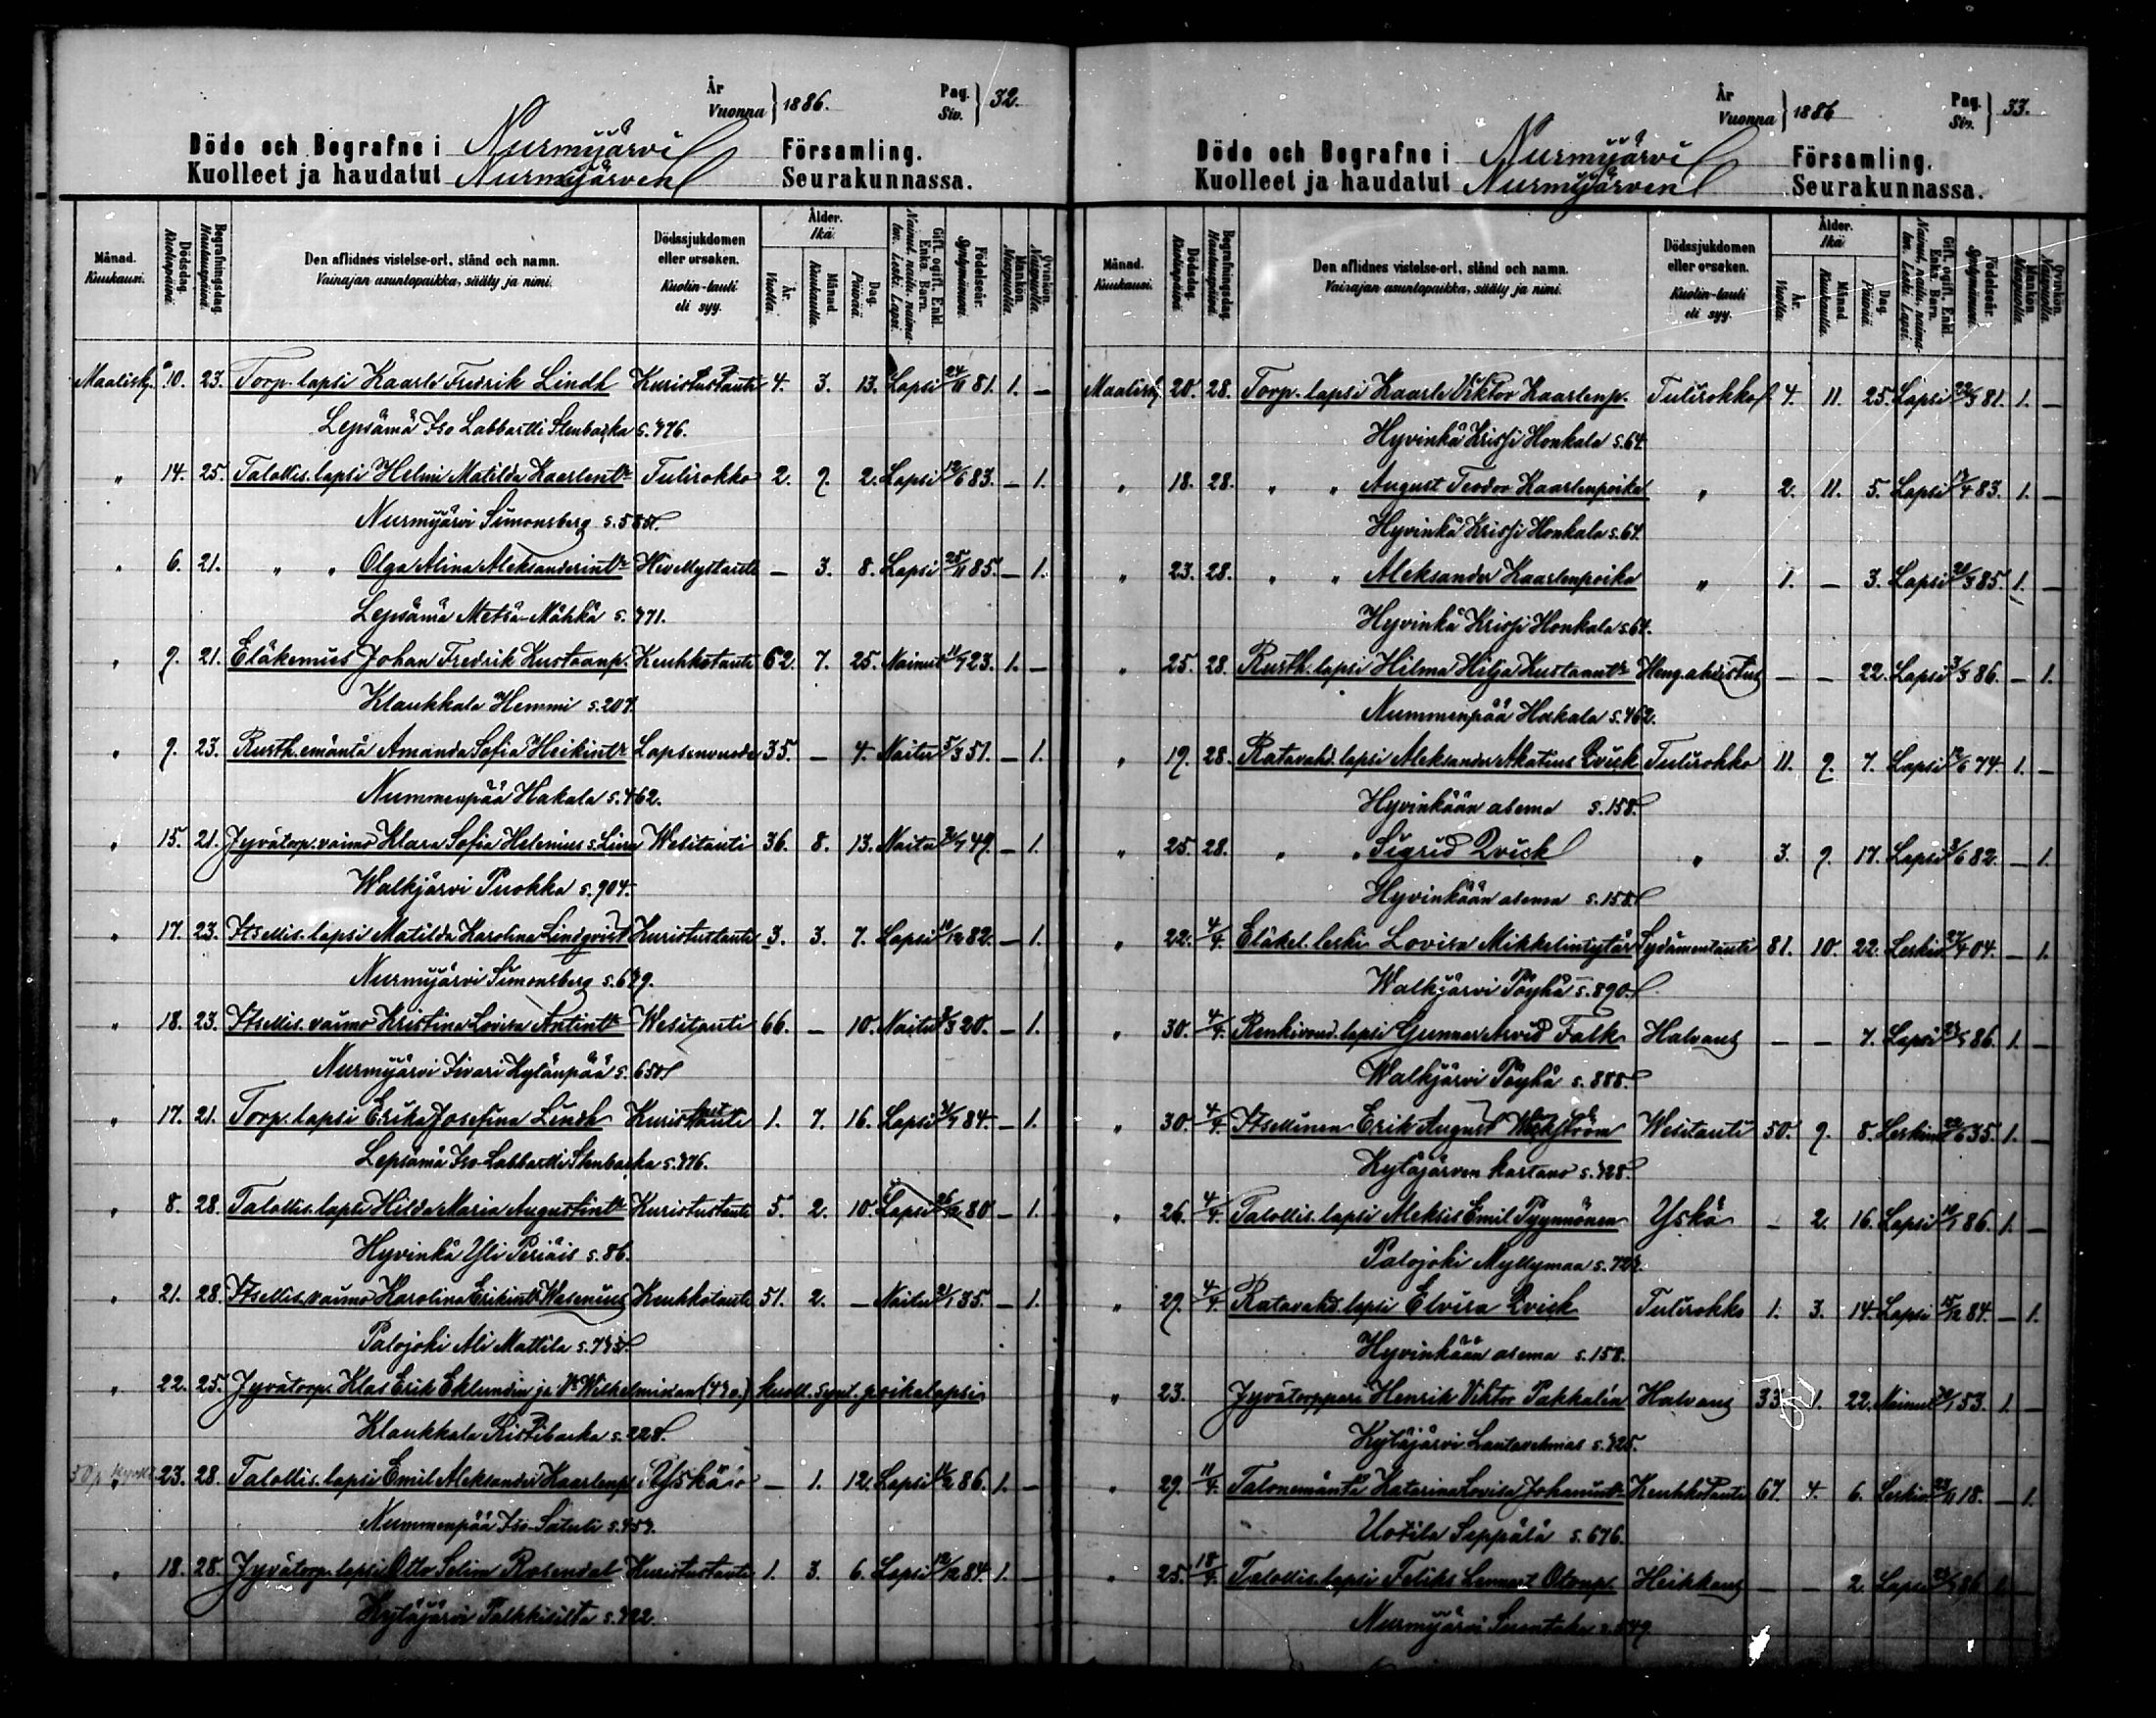 År
Vuonna } 1886.
Pag.
Siv. } 32.
Döde och Begrafne i Nurmijärvi Församling.
Kuolleet ja haudatut Nurmijärven Seurakunnassa.
Månad. Kuukausi.
Dödsdag. Kuolinpäivä.
Begrafningsdag. Hautauspäivä.
Den aflidnes vistelse-ort, stånd och namn.
Vainajan asuntopaikka, sääty ja nimi.
Dödssjukdomen eller orsaken.
Kuolin-tauti eli syy.
Ålder. Ikä.
År. Vuotta.
Månad. Kuukautta.
Dag. Päivää.
Gift, ogift, Enkl. Enka. Barn.
Nainut, naitu, naimaton. Leski. Lapsi.
Födelseår. Syntymävuosi.
Mankön. Miespuolta.
Qvinkön. Naispuolta.
Maalisk. 10. 23. Torp. lapsi Kaarle Fredrik Lindh Kuristustauti 4. 3. 13. Lapsi 24/11 81. 1. —
Lepsämä Iso Labbartti Stenbacka s. 476.
" 14. 25. Talollis. lapsi Helmi Matilda Kaarlentr Tulirokko 2. 9. 2. Lapsi 12/6 83. — 1.
Nurmijärvi Simonsberg s. 585.
" 6. 21. " " Olga Alina Aleksanderintr — 3. 8. Lapsi 25/11 85. — 1.
Lepsämä Metsä-Mähkä s. 471.
" 9. 21. Eläkemies Johan Fredrik Kustaanp. Keuhkotauti 62. 7. 25. Nainut 11/7 23. 1. —
Klaukkala Hemmi s. 207.
" 9. 23. Rusth. emäntä Amanda Sofia Heikintr Lapsenvuode 35. — 4. Naitu 5/3 51. — 1.
Nummenpää Hakala s. 462.
" 15. 21. Jyvätorp. vaimo Klara Sofia Helenius s. Wesitauti 36. 8. 13. Naitu 49. — 1.
Walkjärvi Puokka s. 904.
" 17. 23. Itsellis. lapsi Matilda Karolina Lindqvist Kuristustauti 3. 3. 7. Lapsi 10/12 82. — 1.
Nurmijärvi Simonsberg s. 649.
" 18. 23. Itsellis. vaimo Kristina Lovisa Antintr Wesitauti 66. — 10. Naitu 8/3 20. — 1.
Nurmijärvi Kylänpää s. 650.
" 17. 21. Torp. lapsi Erika Josefina Lindh Kuristustauti 1. 7. 16. Lapsi 84. — 1.
Lepsämä Iso-Labbartti Stenbacka s. 476.
" 8. 28. Talollis. lapsi Hilda Maria Augustintr Kuristustauti 5. 2. 10. Lapsi 26/12 80 — 1.
Hyvinkä Yli Periäis s. 86.
" 21. 28. Itsellis. vaimo Karolina Erikintr Wasenius Keuhkotauti 51. 2. — Naitu 21/1 35. — 1.
Palojoki Ali Mattila s.
" 22. 25. Jyvätorp. Klas Erik Eklundin ja Vo Wilhelminan kuoll. synt. poikalapsi
Klaukkala Ristibacka s. 228.
" 23. 28. Talollis. lapsi Emil Aleksander Kaarlenp. Yskä — 1. 12. Lapsi 11/2 86. 1. —
Nummenpää Iso-Satuli s.
" 18. 28. Jyvätorp. lapsi Otto Selim Rosendal Kuristustauti 1. 3. 6. Lapsi 12/12 84. 1. —
Kytäjärvi Palkkisilta s. 422.
År
Vuonna } 1886
Pag.
Siv. } 33.
Döde och Begrafne i Nurmijärvi Församling.
Kuolleet ja haudatut Nurmijärven Seurakunnassa.
Månad. Kuukausi.
Dödsdag. Kuolinpäivä.
Begrafningsdag. Hautauspäivä.
Den aflidnes vistelse-ort, stånd och namn.
Vainajan asuntopaikka, sääty ja nimi.
Dödssjukdomen eller orsaken.
Kuolin-tauti eli syy.
Ålder. Ikä
År. Vuotta.
Månad. Kuukautta.
Dag. Päivää.
Gift, ogift, Enkl. Enka. Barn.
Nainut, naitu, naimaton. Leski. Lapsi.
Födelseår. Syntymävuosi.
Mankön. Miespuolta.
Qvinkön. Naispuolta.
Maalisk. 20. 28. Torp. lapsi Kaarle Viktor Kaarlenp. Tulirokko 4. 11. 25. Lapsi 81. 1. —
Hyvinkä Krissi Honkala s. 64.
" 18. 28. " " August Teodor Kaarlenpoika " 2. 11. 5. Lapsi 13/4 83. 1. —
Hyvinkä Krissi Honkala s. 64.
" 23. 28. " " Aleksander Kaarlenpoika " 1. — 3. Lapsi 20/3 85. 1. —
Hyvinkä Krissi Honkala s. 64.
" 25. 28. Rusth. lapsi Hilma Hilja Kustaantr Heng.ahdistus — — 22. Lapsi 3/3 86. — 1.
Nummenpää Hakala s. 462.
" 19. 28. Ratavahd. lapsi Aleksander Akatius Qvick Tulirokko 11. 9. 7. Lapsi 12/6 74. 1. —
Hyvinkään asema s. 158.
" 25. 28. " " Sigrid Qvick " 3. 9. 17. Lapsi 82. — 1.
Hyvinkään asema s. 158.
" 22. 4/4. Eläkel. leski Lovisa Mikkelintytär Sydämentauti 81. 10. 22. Leskivo 04. — 1.
Walkjärvi Pöyhä s. 890.
" 30. 4/4. Renkivoud. lapsi Gunnar Arvid Falk Halvaus — — 7. Lapsi 23/3 86. 1. —
Walkjärvi Pöyhä s. 888.
" 30. 4/4. Itsellinen Erik August Wesitauti 50. 9. 8. Leskim. 22/6 35. 1. —
Kytäjärven kartano s. 428.
" 26. 4/4. Talollis. lapsi Aleksis Emil Pyynnönen Yskä — 2. 16. Lapsi 10/1 86. 1. —
Palojoki Myllymaa s.
" 29. 4/4. Ratavahd. lapsi Elvira Qvick Tulirokko 1. 3. 14. Lapsi 15/12 84. — 1.
Hyvinkään asema s. 158.
" 23. Jyvätorppari Henrik Viktor Pakkalén Halvaus 33. 1. 22. Nainut 53. 1. —
Kytäjärvi s. 425.
" 29. 11/4. Talonemäntä Katarina Lovisa Johanintr Keuhkotauti 67. 4. 6. Leskivo 23/11 18. — 1.
Uotila Seppälä s. 676.
" 25. 18/4. Talollis. lapsi Feliks Lennart Otonp. Heikkous — — 2. Lapsi 23/3 86. 1. —
Nurmijärvi s. 549.